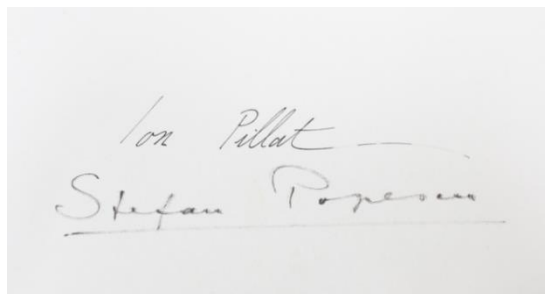 Ion Pillat
Stefan Popescu